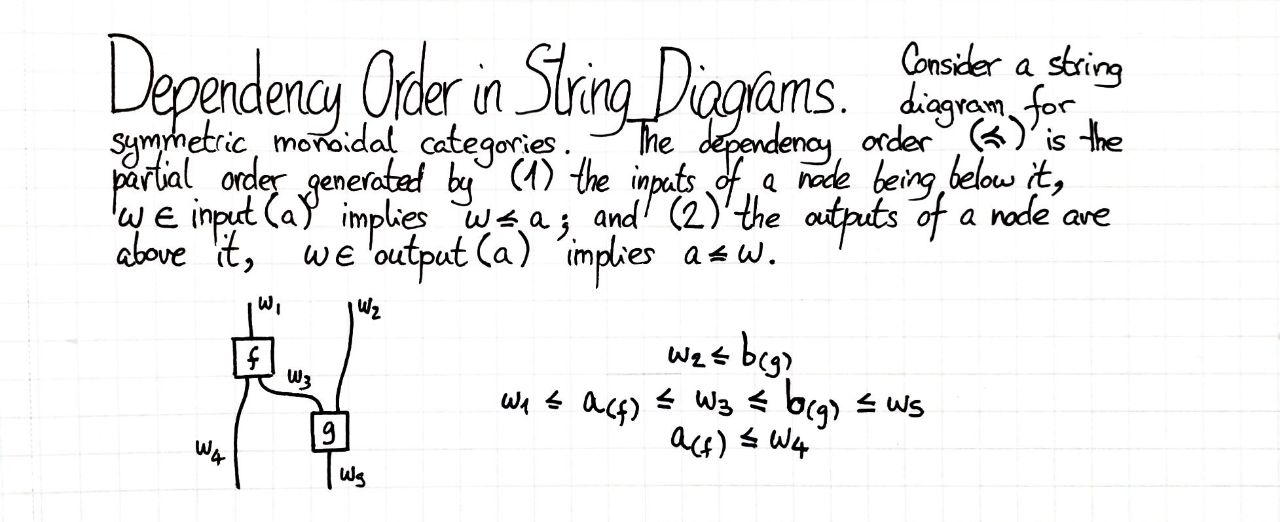 Dependency Order in String Diagrams. Consider a string
diagram for
symmetric monoidal categories. The dependency order (≼) is the
partial order generated by (1) the inputs of a node being below it,
w ∈ input(a) implies w ≤ a; and (2) the outputs of a node are
above it, w ∈ output(a) implies a ≤ w.
w1 w2
f
w3
g
w4
w5
w2 ≤ b(g)
w1 ≤ a(f) ≤ w3 ≤ b(g) ≤ w5
a(f) ≤ w4